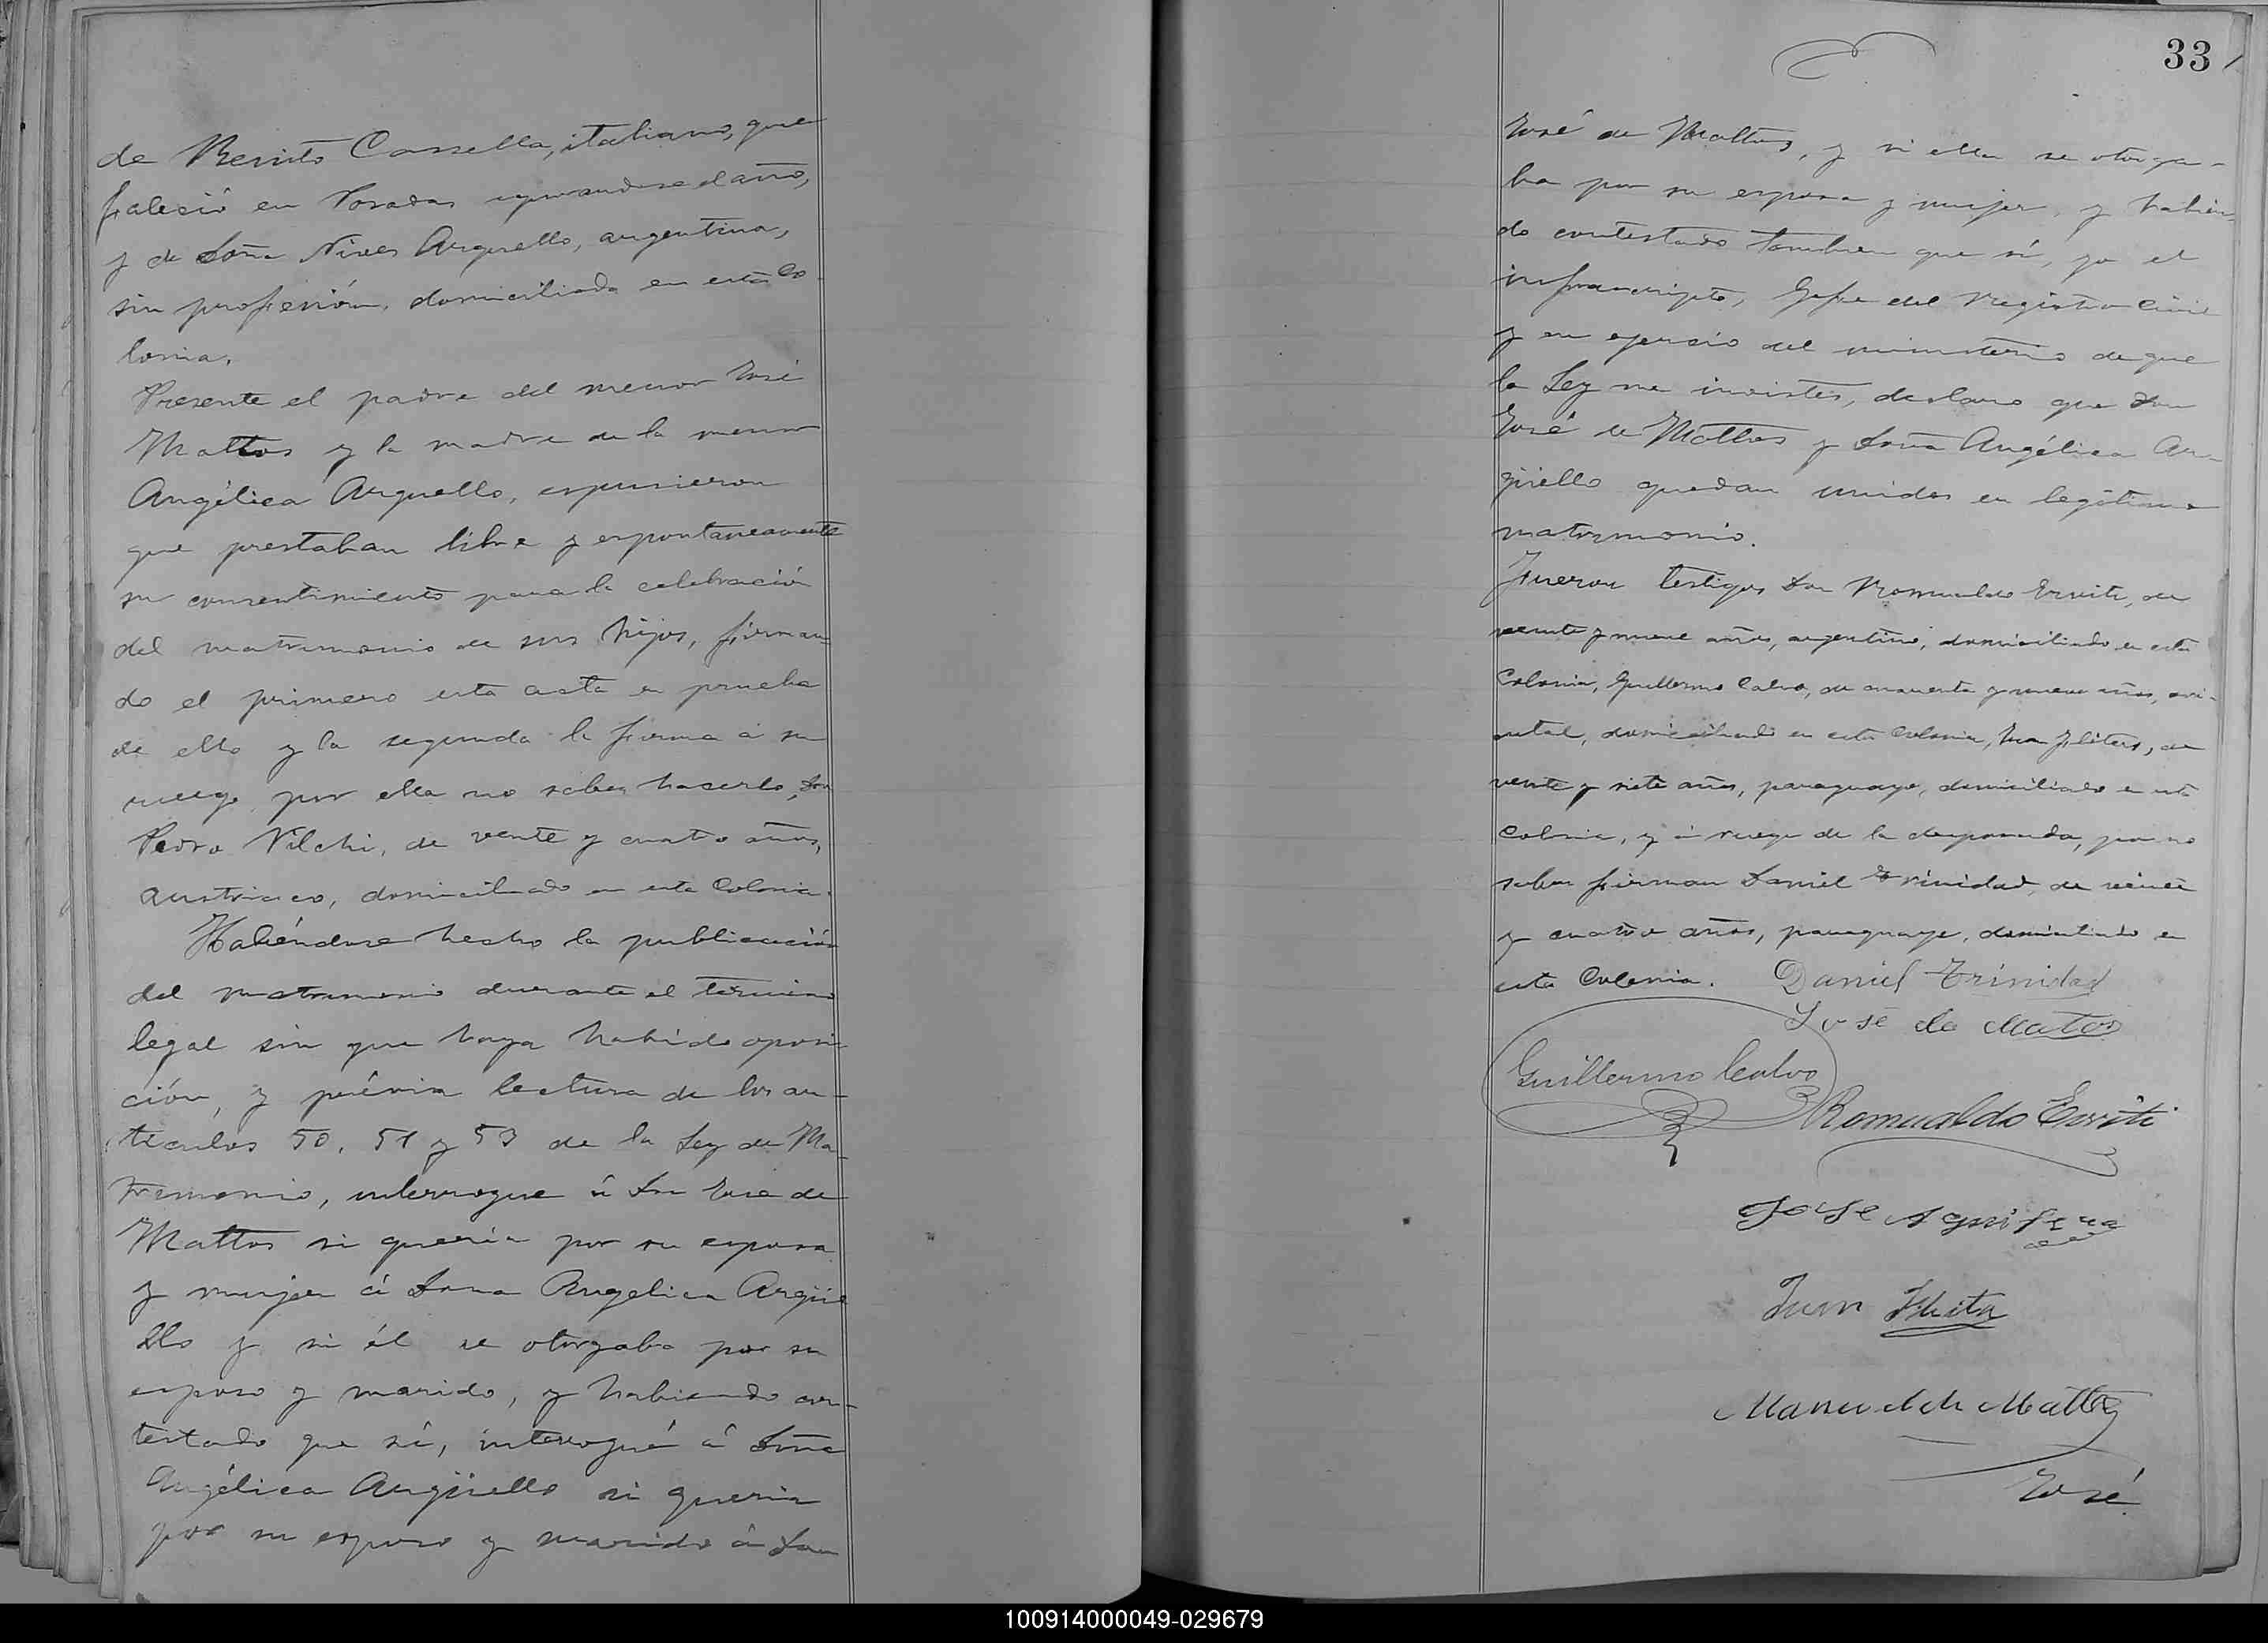 de Benito Cassella, italiano, que
falesió en Posadas ignorandose el año,
y de Doña Nives Arguello, argentina,
sin profesión, domiciliada en esta Co
lonia.
Presente el padre del menor José
Mattos y la madre de la menor
Angélica Arguello, espusieron
que prestaban libre y espontaneamente
su consentimiento para la celebración
del matrimonio de sus hijos, firman-
do el primero esta acta en prueba
de ello y la segunda la firma á su
ruego, por ella no saber hacerlo, Don
Pedro Vilchi, de vente y cuatro años,
austriaco, domiciliado en esta Colonia.
Habiéndose hecho la publicación
del matrimonio durante el término
legal sin que haya habido oposi-
ción, y prévia lectura de los ar-
ticulos 50, 51 y 53 de la Ley de Ma-
tremonio, interrogue á Don José de
Mattos si queria por su esposa
y mujer á Dona Angelica Argüe
llo y si él se otorgaba por su
esposo y marido, y habiendo con-
testado que sí, interrogué á Doña
Angélica Argüello si queria
por su esposo y marido á Don
33
José de Mattos, y si ella se otorga-
ba por su esposa y mujer, y habien-
do contestado tambien que sí, yo el
infrascripto, Gefe del Registro Civil
y en ejercio del ministerio de que
la Ley me inviste, declaro que Don
José de Mattos y Doña Angélica Ar-
güello quedan unidos en legítimo
matrimonio.
Fueron testigos Don Romualdo Erviti, de
veinte y nueve años, argentino, domiciliado en esta
Colonia, Guillermo Calvo, de cuarenta y nueve años, ori-
ental, domiciliado en esta Colonia, Juan de
vente y siete años, paraguayo, domiciliado en esta
Colonia, y á ruego de la desposada, por no
saber firmar Daniel Trinidad, de veinte
y cuatro años, paraguayo, domiciliado en
esta Colonia. Daniel Trinidad
José de Matos
Guillermo Calvo
Romualdo Erviti
José Aguilera
Juan
Manuel de Mattos
José
100914000049-029679